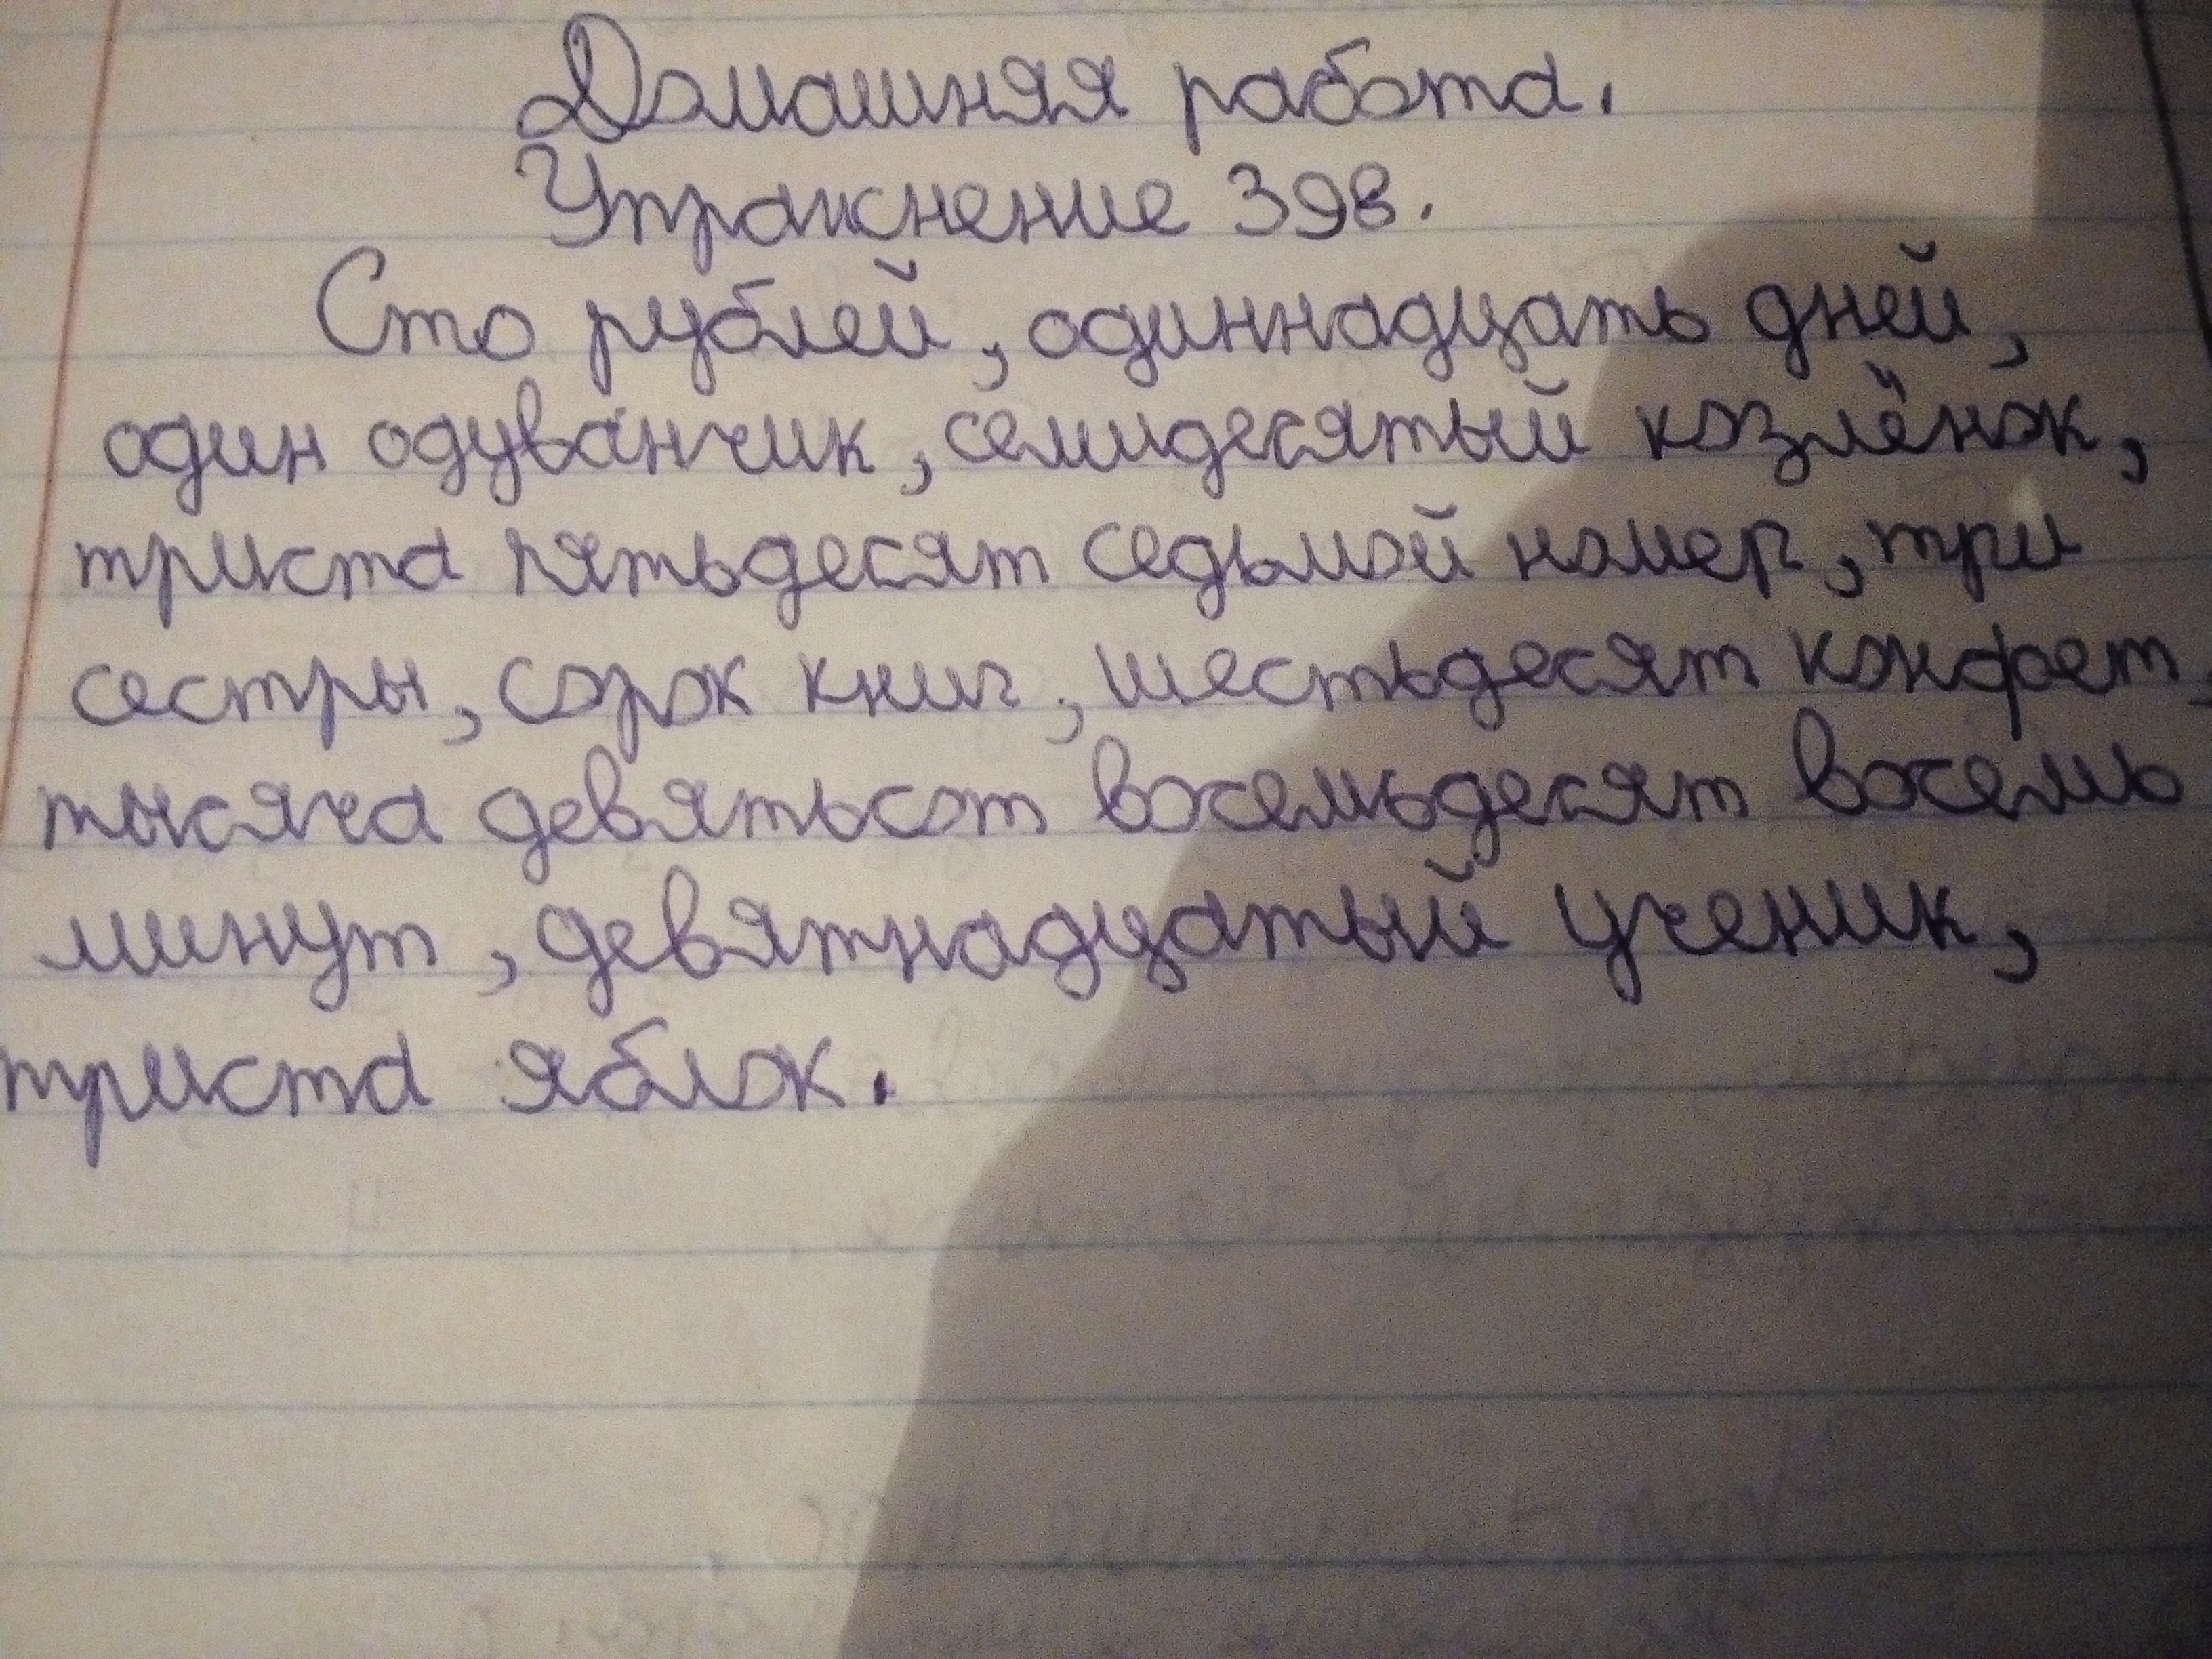 Домашняя работа.
Упражнение 398.
Сто рублей, одиннадцать дней,
один одуванчик, семидесятый козлёнок,
триста пятьдесят седьмой номер, три
сестры, сорок книг, шестьдесят конфет,
тысяча девятьсот восемьдесят восемь
минут, девятнадцатый ученик,
триста яблок.